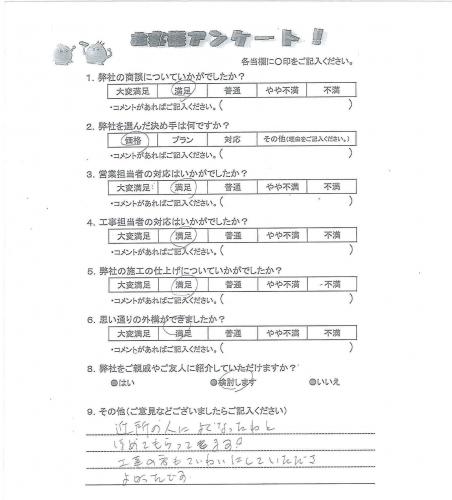 お客様アンケート！
各当欄に○印をご記入ください。
1. 弊社の商談についていかがでしたか？
大変満足 満足 普通 やや不満 不満
・コメントがあればご記入ください。( )
2. 弊社を選んだ決め手は何ですか？
価格 プラン 対応 その他(理由をご記入ください。)
・コメントがあればご記入ください。( )
3. 営業担当者の対応はいかがでしたか？
大変満足 満足 普通 やや不満 不満
・コメントがあればご記入ください。( )
4. 工事担当者の対応はいかがでしたか？
大変満足 満足 普通 やや不満 不満
・コメントがあればご記入ください。( )
5. 弊社の施工の仕上げについていかがでしたか？
大変満足 満足 普通 やや不満 不満
・コメントがあればご記入ください。( )
6. 思い通りの外構ができましたか？
大変満足 満足 普通 やや不満 不満
・コメントがあればご記入ください。( )
8. 弊社をご親戚やご友人に紹介していただけますか？
●はい ●検討します ●いいえ
9. その他(ご意見などございましたらご記入ください)
近所の人によくなったねと
ほめてもらってます。
工事の方もていねいにしていただき
よかったです